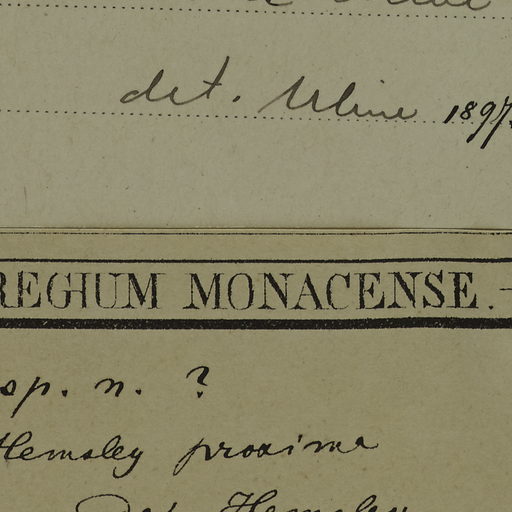 det. Uline 1897.
REGIUM MONACENSE.
sp. n. ?
Hemsley proxima
Hemsley